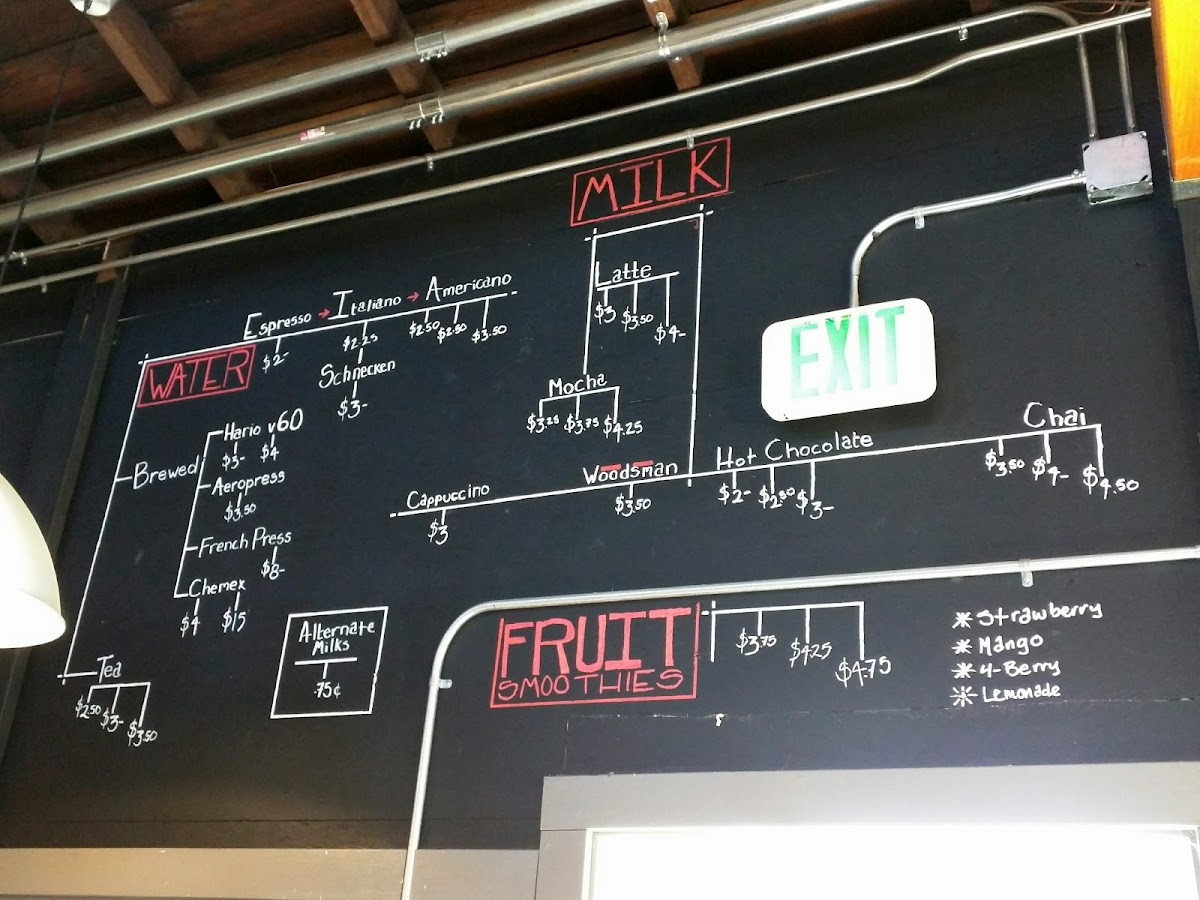 MILK
Latte
$3 $3.50 $4-
Mocha
$3.25 $3.75 $4.25
Espresso → Italiano → Americano
$2- $2.25 $2.50 $2.50 $3.50
Schnecken
$3-
WATER
Brewed
Hario v60
$3- $4
Aeropress
$3.50
French Press
$8-
Chemex
$4 $15
Tea
$2.50 $3- $3.50
Cappuccino
$3
Woodsman
$3.50
Hot Chocolate
$2- $2.50 $3-
Chai
$3.50 $4- $4.50
EXIT
Alternate
Milks
.75¢
FRUIT
SMOOTHIES
$3.75 $4.25 $4.75
* Strawberry
* Mango
* 4-Berry
* Lemonade